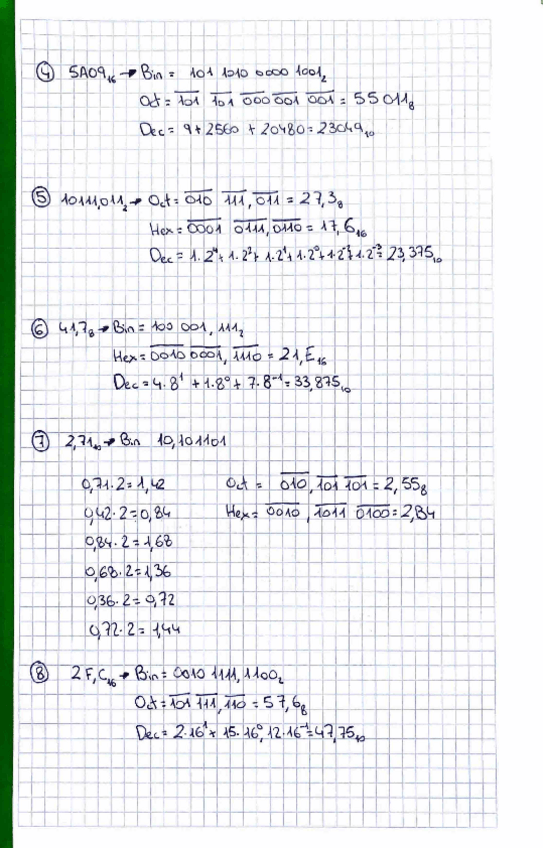 ④ 5A09₁₆ → Bin = 101 1010 0000 1001₂
Oct = 101 101 000 001 001 = 55011₈
Dec = 9 + 2560 + 20480 = 23049₁₀
⑤ 10111,011₂ → Oct = 010 111, 011 = 27,3₈
Hex = 0001 0111, 0110 = 17,6₁₆
Dec = 1·2⁴ + 1·2² + 1·2¹ + 1·2⁰ + 1·2⁻² + 1·2⁻³ = 23,375₁₀
⑥ 41,7₈ → Bin = 100 001, 111₂
Hex = 0010 0001, 1110 = 21,E₁₆
Dec = 4·8¹ + 1·8⁰ + 7·8⁻¹ = 33,875₁₀
⑦ 2,71₁₀ → Bin 10,101101
0,71·2 = 1,42 Oct = 010, 101 101 = 2,55₈
0,42·2 = 0,84 Hex = 0010, 1011 0100 = 2,B4
0,84·2 = 1,68
0,68·2 = 1,36
0,36·2 = 0,72
0,72·2 = 1,44
⑧ 2F,C₁₆ → Bin = 0010 1111, 1100₂
Oct = 101 111, 110 = 57,6₈
Dec = 2·16¹ + 15·16⁰, 12·16⁻¹ = 47,75₁₀